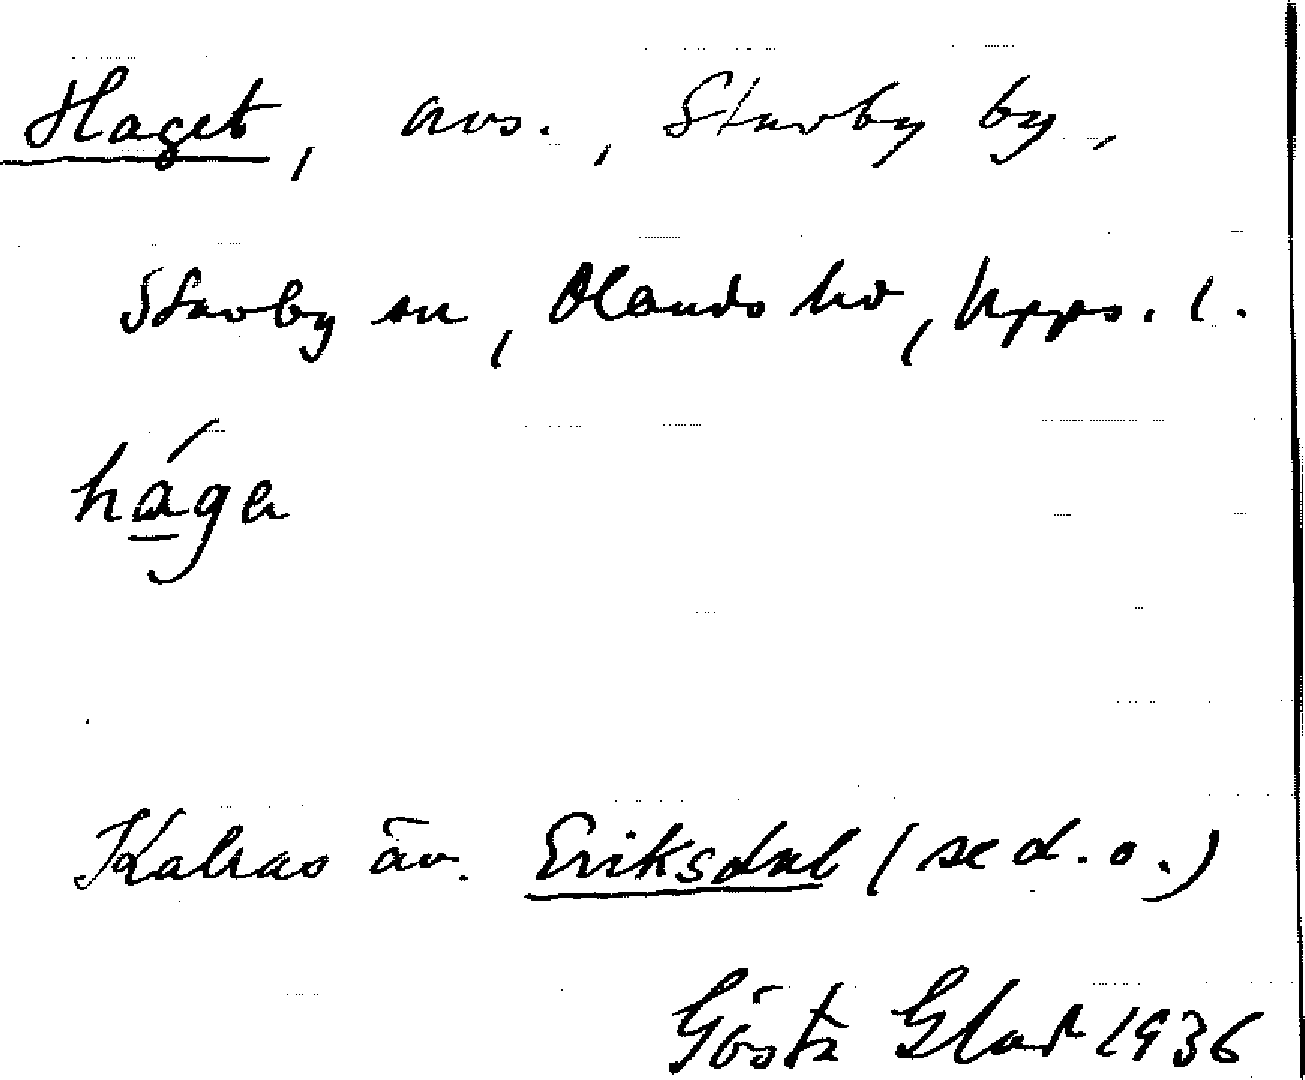 Haget, avs., Stavby by,
Stavby sn, Olands hd, Upps. l.
hága
Kallas äv. Eriksdal (se d. o.)
Gösta Glad 1936